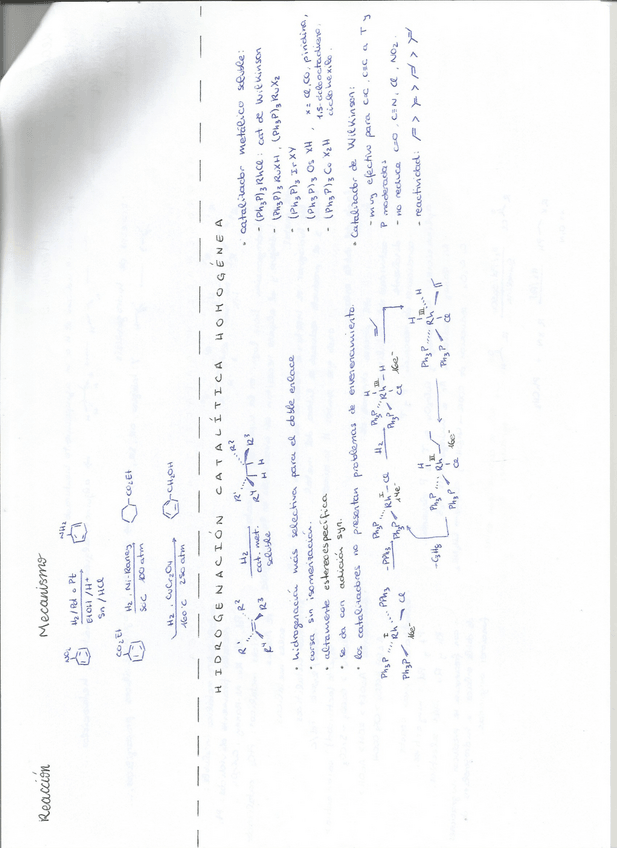 Reacción
Mecanismo
NO₂
H₂/Pd o Pt
EtOH/H⁺
Sn/HCl
NH₂
CO₂Et
H₂, Ni-Raney
50C 100 atm
CO₂Et
H₂, CuCr₂O₄
160°C 250 atm
CH₂OH
HIDROGENACIÓN CATALÍTICA HOMOGÉNEA
R¹ R² R³ R⁴
H₂
cat. met.
soluble
R¹ R² R³ R⁴ H H
• hidrogenación más selectiva para el doble enlace
• cursa sin isomerización.
• altamente estereoespecífica
• se da con adición syn.
• los catalizadores no presentan problemas de envenenamiento.
Ph₃P I PPh₃
Rh
Ph₃P Cl
16e⁻
-PPh₃
Ph₃P I
Rh-Cl
Ph₃P
14e⁻
H₂
H
Ph₃P III
Rh-H
Ph₃P Cl
16e⁻
H
Ph₃P III H
Rh
Ph₃P Cl
H
Ph₃P III
Rh
Ph₃P Cl
16e⁻
• catalizador metálico soluble:
- (Ph₃P)₃RhCl: cat de Wilkinson
- (Ph₃P)₃RuXH, (Ph₃P)₃RuX₂
- (Ph₃P)₃IrXY
- (Ph₃P)₃OsXH, x = Cl, CO, piridina,
- (Ph₃P)₃CuX₂H 1,5-ciclooctadieno,
ciclohexilo.
• Catalizador de Wilkinson:
- muy efectivo para C=C, C≡C a T y
P moderadas
- no reduce C=O, C≡N, Cl, NO₂.
- reactividad: > > >